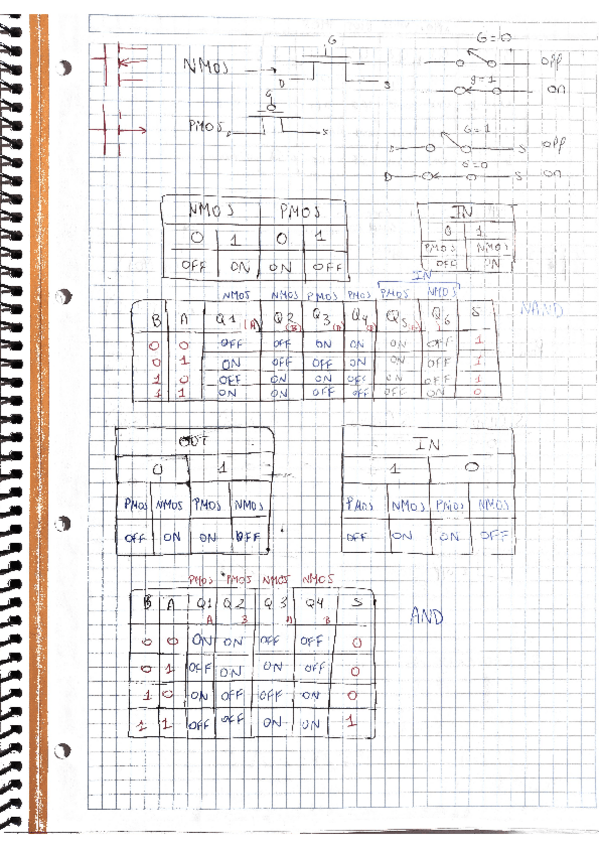 G
G=0
NMOS
D
S
OFF
G=1
ON
G
PMOS
S
G=1
S
S
OFF
G=0
D
S
ON
NMOS PMOS
0 1 0 1
OFF ON ON OFF
IN
0 1
PMOS NMOS
OFF ON
IN
NMOS NMOS PMOS PMOS PMOS NMOS
B A Q1 (A) Q2 (B) Q3 Q4 Q5 Q6 S
NAND
0 0 OFF OFF ON ON ON OFF 1
0 1 ON OFF OFF ON ON OFF 1
1 0 OFF ON ON OFF ON OFF 1
1 1 ON ON OFF OFF OFF ON 0
OUT
0 1
PMOS NMOS PMOS NMOS
OFF ON ON OFF
IN
1 0
PMOS NMOS PMOS NMOS
OFF ON ON OFF
PMOS PMOS NMOS NMOS
B A Q1 A Q2 B Q3 A Q4 B S
AND
0 0 ON ON OFF OFF 0
0 1 OFF ON ON OFF 0
1 0 ON OFF OFF ON 0
1 1 OFF OFF ON ON 1